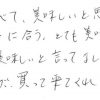 べて、美味しいと思
に合う。とても美
美味しいと言ってまし
が、買って来てくれ